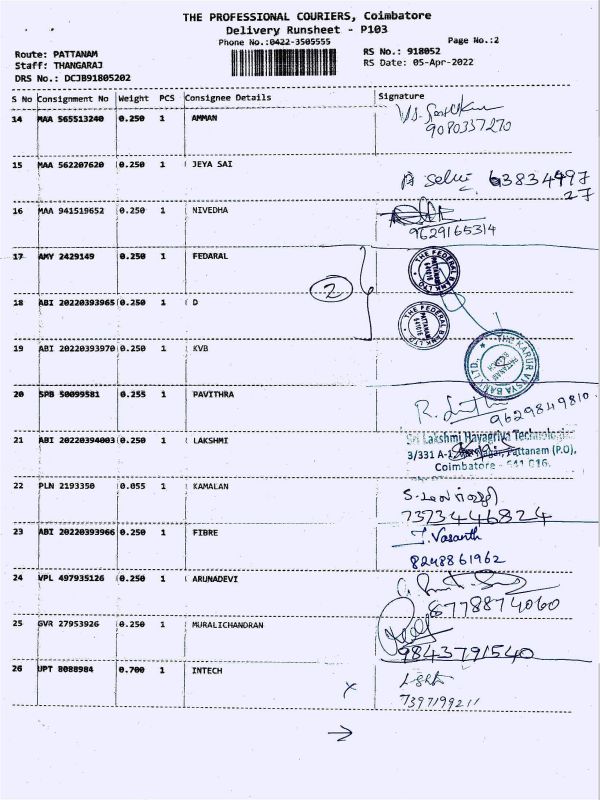 THE PROFESSIONAL COURIERS, Coimbatore
Delivery Runsheet - P103
Phone No.:0422-3505555
Page No.:2
Route: PATTANAM
RS No.: 918052
Staff: THANGARAJ
RS Date: 05-Apr-2022
DRS No.: DCJB91805202
S No Consignment No Weight PCS Consignee Details Signature
14 MAA 565513240 0.250 1 AMMAN
9080337270
15 MAA 562207620 0.250 1 JEYA SAI
A selvi 63834997
27
16 MAA 941519652 0.250 1 NIVEDHA
9629165314
17 AMY 2429149 0.250 1 FEDARAL
THE FEDERAL BANK LTD
PATTANAM
641016
2
18 ABI 20220393965 0.250 1 D
THE FEDERAL BANK LTD
PATTANAM
641016
19 ABI 20220393970 0.250 1 KVB
THE KARUR VYSYA BANK LTD.,
PATTANAM
20 SPB 50099581 0.255 1 PAVITHRA
9629849810
21 ABI 20220394003 0.250 1 LAKSHMI
Sri Lakshmi Hayagriva Technologies
3/331 A-1, Nagar, Pattanam (P.O),
Coimbatore - 641 016.
22 PLN 2193350 0.055 1 KAMALAN
7373446824
23 ABI 20220393966 0.250 1 FIBRE
J. Vasanth
8248861962
24 VPL 497935126 0.250 1 ARUNADEVI
6778874060
25 GVR 27953926 0.250 1 MURALICHANDRAN
9843791540
26 UPT 8088984 0.700 1 INTECH
x
7397199211
→